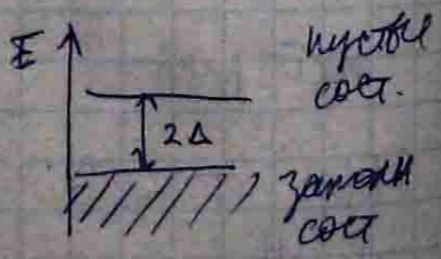 E
пустые
сост.
2Δ
заполн
сост